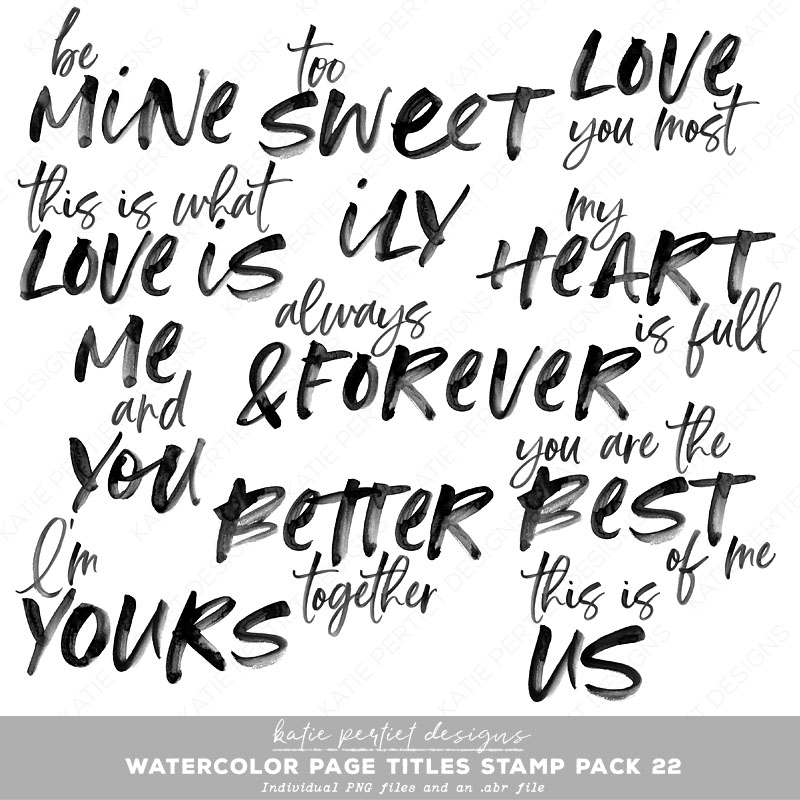 be
MiNe
too
SWeeT
LOVe
you most
this is what
LOVe iS
iLY
my
HeART
is full
Me
and
YOU
always
&FOReVeR
you are the
BeST
of me
BeTTeR
together
I'm
YOURS
this is
US
katie pertiet designs
WATERCOLOR PAGE TITLES STAMP PACK 22
Individual PNG files and an .abr file
KATIE PERTIET DESIGNS